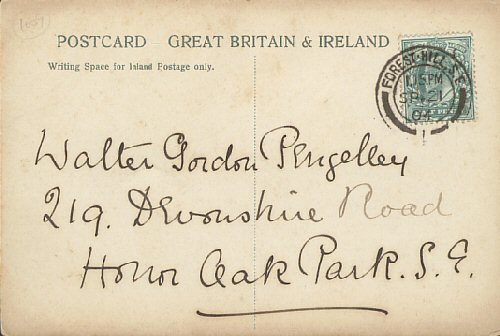 POSTCARD GREAT BRITAIN & IRELAND
Writing Space for Island Postage only.
FOREST HILL S.E.
11.15 PM
SP 21
Walter Gordon Pengelley
219. Devonshire Road
Honor Oak Park. S.E.